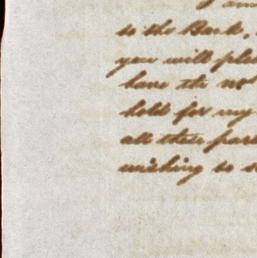 to the Bank,
you will ple
have the no
hold for my
all these par
wishing to s